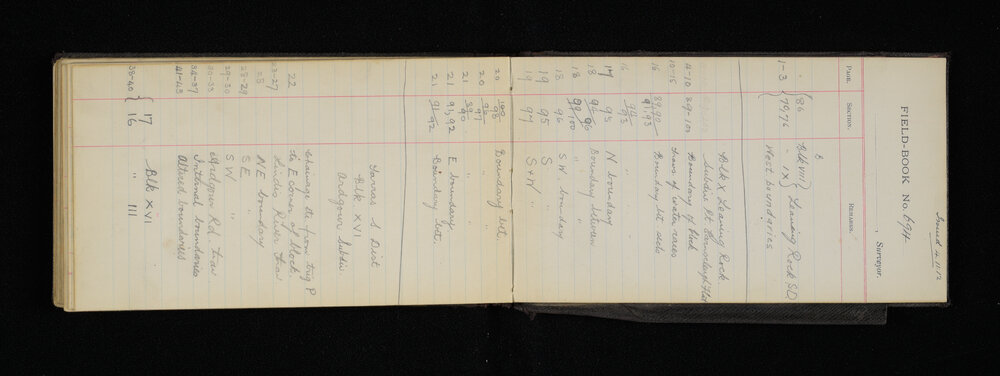 Issued 4.11.12
FIELD-BOOK No. 694
Surveyor.
PAGE. SECTION. REMARKS.
B
1-3 { 86 Blk VIII } Leaning Rock S.D.
79, 76 " IX }
West boundaries
Blk X Leaning Rock
Subdn Pt
4-10 89-102 Boundary of Block
10-15 Travs. of water races
16 89,90 Boundary bet. secs
91,93
16 94/93 "
17 95 N boundary
18 95/96 Boundary between
18 99/100 " "
18 96 S W boundary
19 95 S "
19 97 S & W "
20 100/98 Boundary bet.
20 98/97 "
21 89/90 "
21 91, 92 E boundary
21 91/92 Boundary bet.
Tarras S Dist
Blk XVI
Ardgour Subdiv.
22 Chainage etc from trig P
to E corner of block.
23-27 Lindis River trav
28 N E boundary
28-29 S E "
29-30 S W "
30-33 Ardgour Rd Trav
34-37 Internal boundaries
41-43 Altered boundaries
38-40 { 17 Blk XVI
16 " III